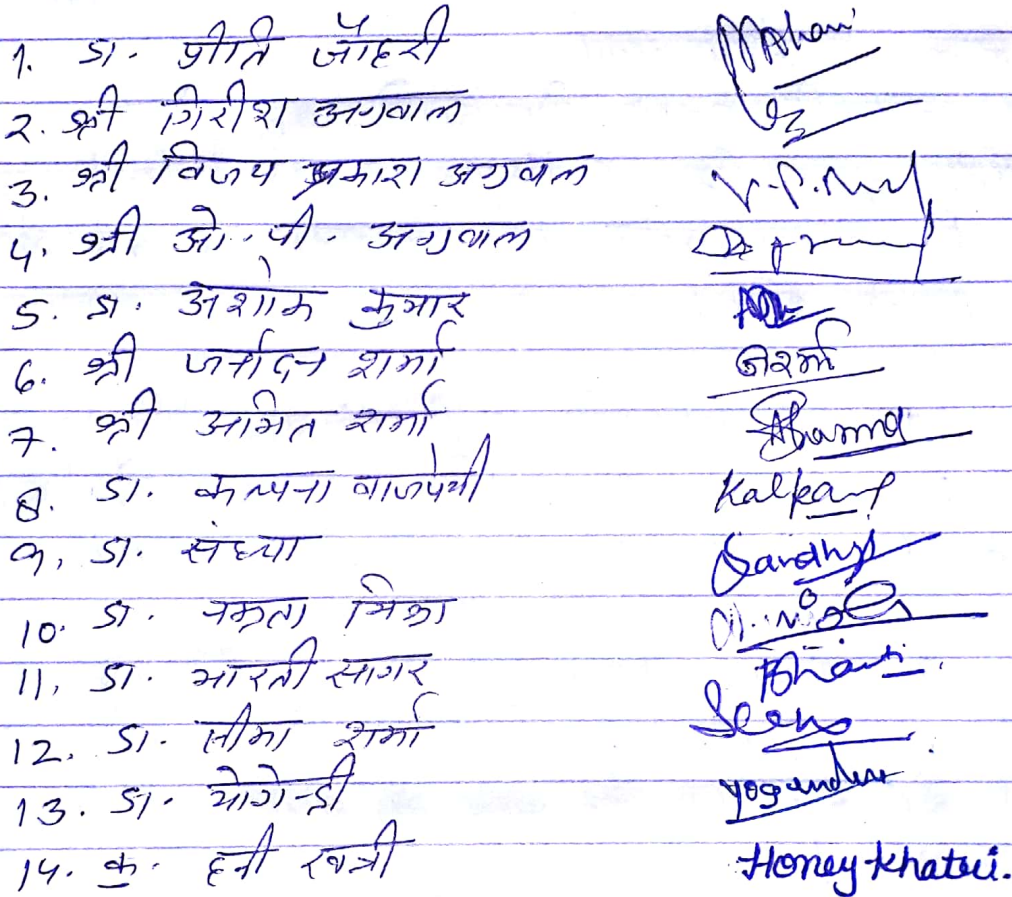 1. डा. प्रीति जौहरी
2. श्री गिरीश अग्रवाल
3. श्री विजय प्रकाश अग्रवाल V.P.
4. श्री ओ. पी. अग्रवाल
5. डा. अशोक कुमार
6. श्री जर्नादन शर्मा
7. श्री अमित शर्मा Sharma
8. डा. कल्पना वाजपेयी Kalpana
9. डा. संध्या Sandhya
10. डा. नम्रता
11. डा. भारती सागर Bharti
12. डा. सीमा शर्मा Seema
13. डा. योगेन्द्री Yogendri
14. कु. हनी खत्री Honey Khatri.